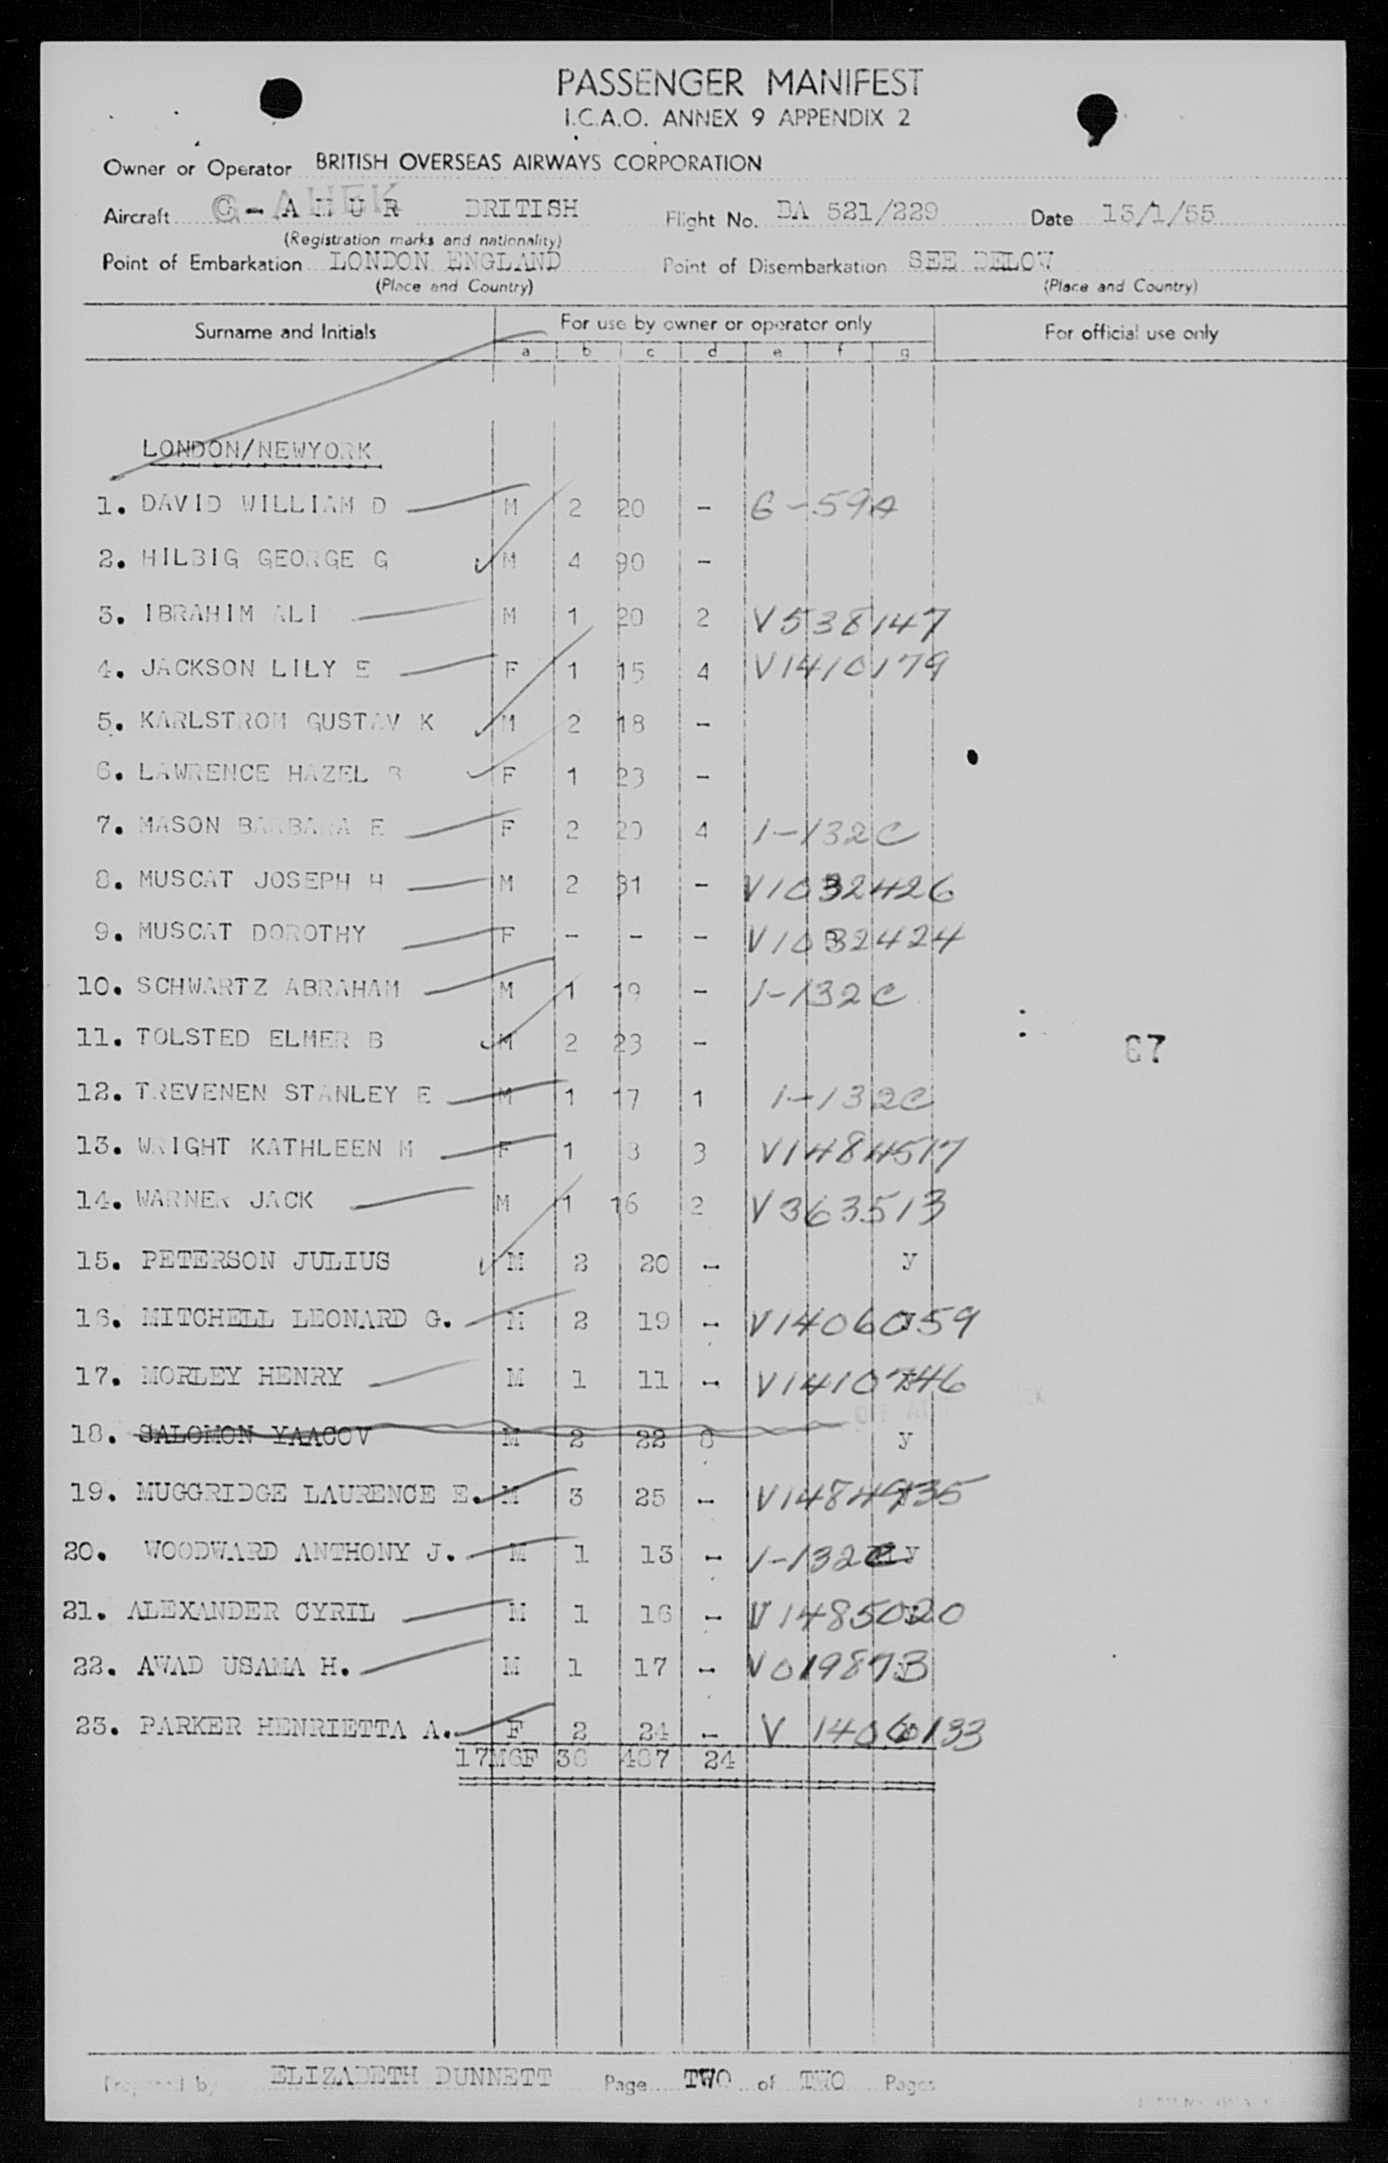 PASSENGER MANIFEST
I.C.A.O. ANNEX 9 APPENDIX 2
Owner or Operator BRITISH OVERSEAS AIRWAYS CORPORATION
Aircraft G-AHUR BRITISH Flight No. BA 521/229 Date 13/1/55
(Registration marks and nationality)
Point of Embarkation LONDON ENGLAND Point of Disembarkation SEE BELOW
(Place and Country) (Place and Country)
Surname and Initials For use by owner or operator only For official use only
a b c d e f g
LONDON/NEWYORK
1. DAVID WILLIAM D M 2 20 - G-59A
2. HILBIG GEORGE G M 4 90 -
3. IBRAHIM ALI M 1 20 2 V538147
4. JACKSON LILY E F 1 15 4 V1410179
5. KARLSTROM GUSTAV K M 2 18 -
6. LAWRENCE HAZEL B F 1 23 -
7. MASON BARBARA E F 2 4 1-132C
8. MUSCAT JOSEPH H M 2 31 - V1032426
9. MUSCAT DOROTHY F - - - V1032424
10. SCHWARTZ ABRAHAM M 1 19 - 1-132C
11. TOLSTED ELMER B M 2 23 -
67
12. TREVENEN STANLEY E M 1 17 1 1-132C
13. WRIGHT KATHLEEN M F 1 3 3 V1484517
14. WARNER JACK M 1 16 2 V363513
15. PETERSON JULIUS M 2 20 - y
16. MITCHELL LEONARD G. M 2 19 - V1406059
17. MORLEY HENRY M 1 11 - V1410746
18. SALOMON YAACOV M 2 22 8 y
19. MUGGRIDGE LAURENCE E. M 3 25 - V1484935
20. WOODWARD ANTHONY J. M 1 13 - 1-132C y
21. ALEXANDER CYRIL M 1 16 - V1485020
22. AWAD USAMA H. M 1 17 - V019873
23. PARKER HENRIETTA A. F 2 24 - V 1406133
17M6F 36 487 24
Prepared by ELIZABETH DUNNETT Page TWO of TWO Pages